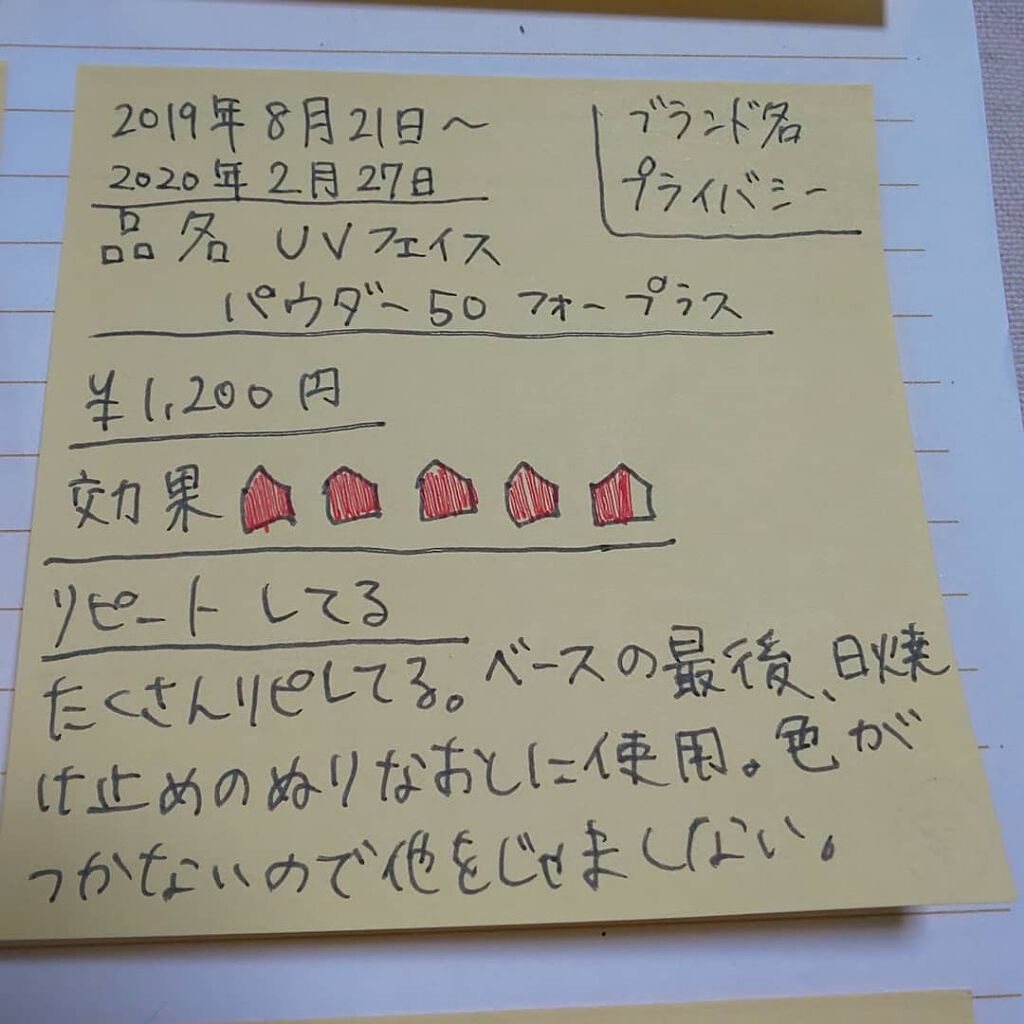 2019年8月21日～
2020年2月27日
ブランド名
プライバシー
品名 UVフェイス
パウダー50 フォープラス
¥1,200円
効果
リピートしてる
たくさんリピしてる。ベースの最後、日焼
け止めのぬりなおしに使用。色が
つかないので他をじゃましない。